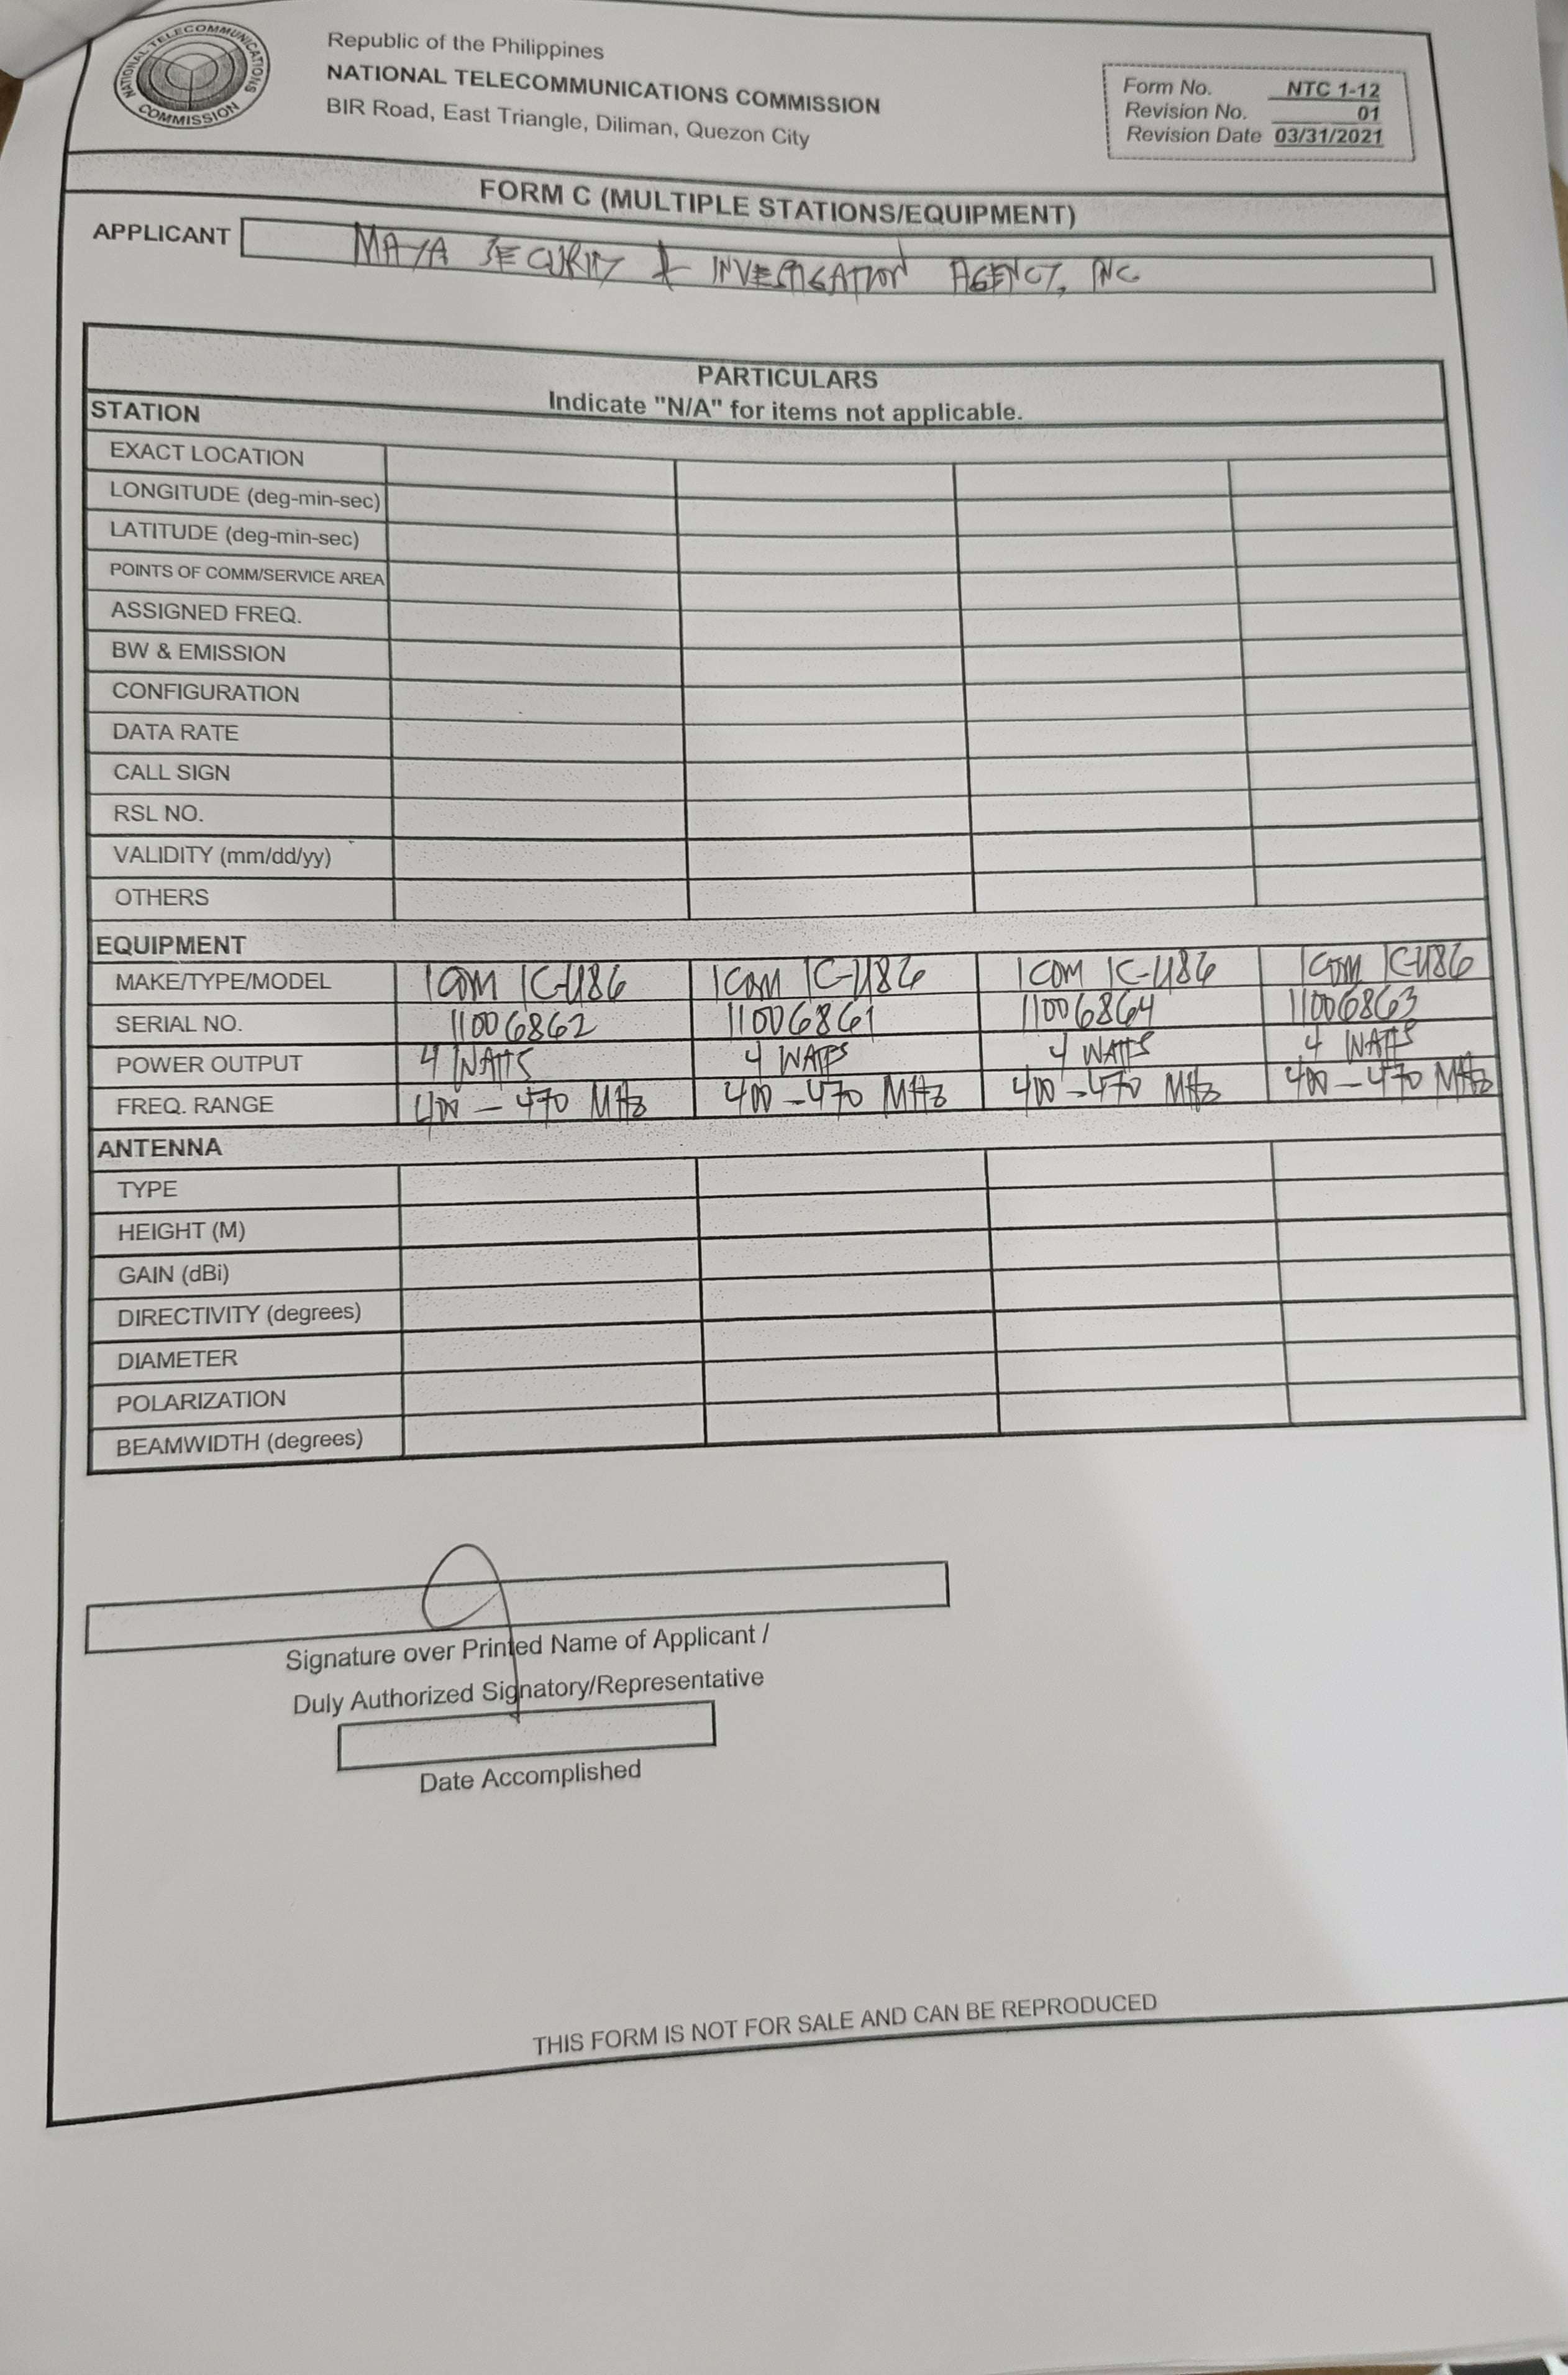 NATIONAL TELECOMMUNICATIONS COMMISSION
Republic of the Philippines
NATIONAL TELECOMMUNICATIONS COMMISSION
BIR Road, East Triangle, Diliman, Quezon City
Form No. NTC 1-12
Revision No. 01
Revision Date 03/31/2021
FORM C (MULTIPLE STATIONS/EQUIPMENT)
APPLICANT MAYA SECURITY & INVESTIGATION AGENCY, INC
PARTICULARS
Indicate "N/A" for items not applicable.
STATION
EXACT LOCATION
LONGITUDE (deg-min-sec)
LATITUDE (deg-min-sec)
POINTS OF COMM/SERVICE AREA
ASSIGNED FREQ.
BW & EMISSION
CONFIGURATION
DATA RATE
CALL SIGN
RSL NO.
VALIDITY (mm/dd/yy)
OTHERS
EQUIPMENT
MAKE/TYPE/MODEL ICOM IC-U86 ICOM IC-U86 ICOM IC-U86 ICOM IC-U86
SERIAL NO. 11006862 11006861 11006864 11006863
POWER OUTPUT 4 WATTS 4 WATTS 4 WATTS 4 WATTS
FREQ. RANGE 400 - 470 MHz 400 - 470 MHz 400 - 470 MHz 400 - 470 MHz
ANTENNA
TYPE
HEIGHT (M)
GAIN (dBi)
DIRECTIVITY (degrees)
DIAMETER
POLARIZATION
BEAMWIDTH (degrees)
Signature over Printed Name of Applicant /
Duly Authorized Signatory/Representative
Date Accomplished
THIS FORM IS NOT FOR SALE AND CAN BE REPRODUCED